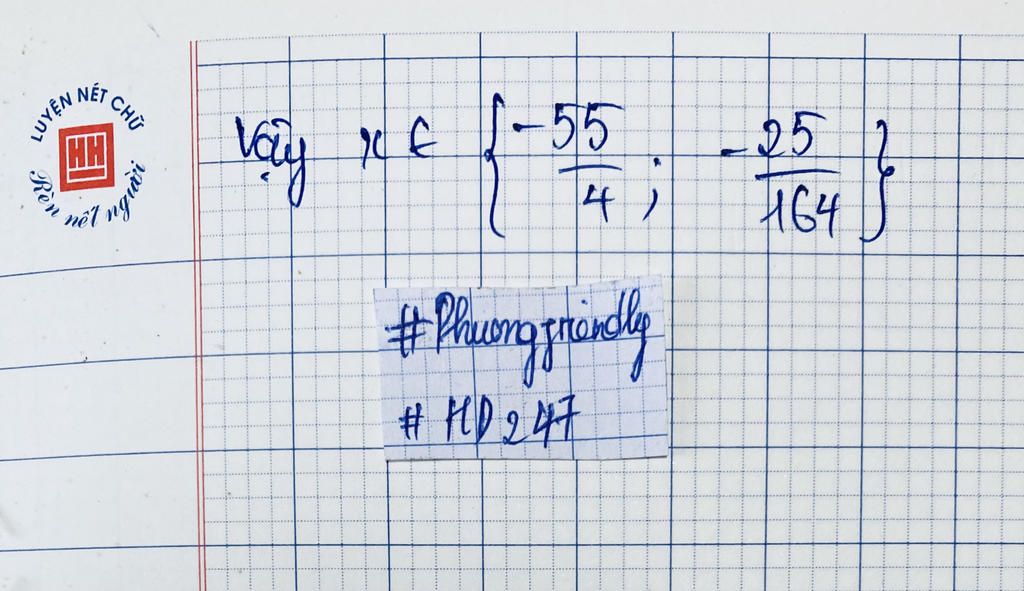 LUYỆN NÉT CHỮ
HH
Rèn nết người
Vậy x ∈ { -55/4 ; -25/164 }
#Phuongfriendly
# HD247